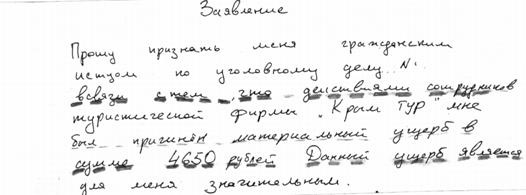 Заявление
Прошу признать меня гражданским
истцом по уголовному делу.. N.
в связи с тем, что действиями сотрудников
туристической фирмы "Крым Тур" мне
был причинён материальный ущерб в
сумме 4650 рублей Данный ущерб является
для меня значительным.